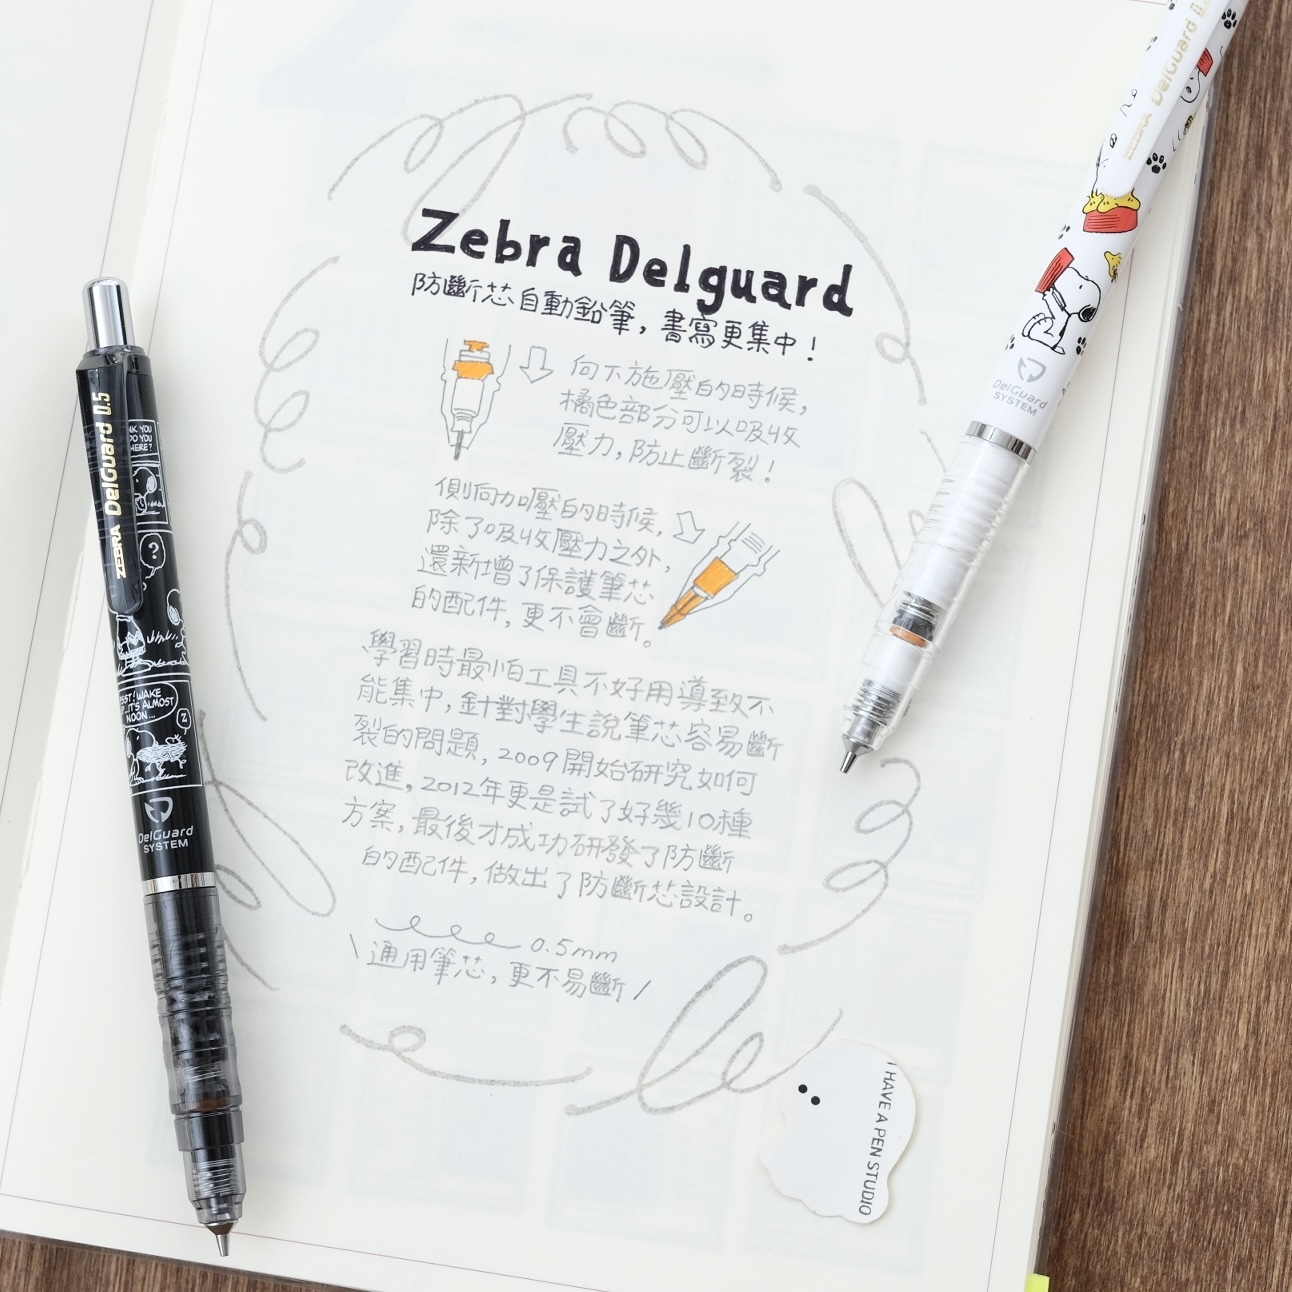 Zebra Delguard
防斷芯自動鉛筆，書寫更集中！
向下施壓的時候，
橘色部分可以吸收
壓力，防止斷裂！
側向加壓的時候，
除了吸收壓力之外，
還新增了保護筆芯
的配件，更不會斷。
學習時最怕工具不好用導致不
能集中，針對學生說筆芯容易斷
裂的問題，2009開始研究如何
改進，2012年更是試了好幾10種
方案，最後才成功研發了防斷
的配件，做出了防斷芯設計。
0.5mm
\通用筆芯，更不易斷/
I HAVE A PEN STUDIO
ZEBRA DelGuard 0.5
NK YOU
DO YOU
HERE?
?
PSST! WAKE
UP...IT'S ALMOST
NOON...
Z
DelGuard
SYSTEM
ZEBRA DelGuard
DelGuard
SYSTEM